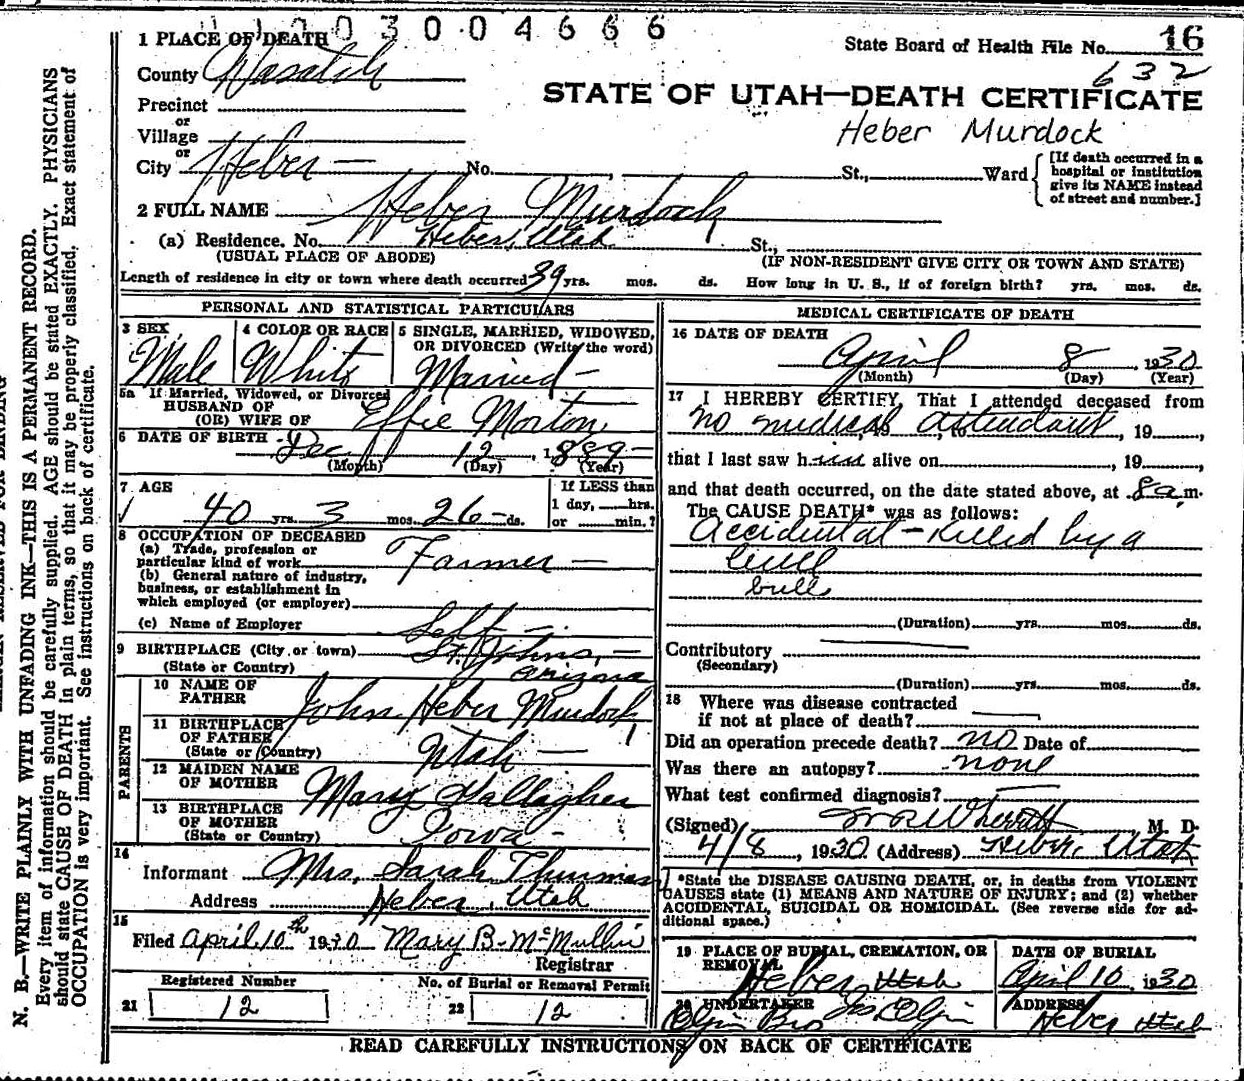 03004666
1 PLACE OF DEATH
State Board of Health File No. 16
632
County Wasatch
STATE OF UTAH—DEATH CERTIFICATE
Precinct
or
Village
Heber Murdock
or
City Heber — No. , St., Ward
[If death occurred in a
hospital or institution
give its NAME instead
of street and number.]
2 FULL NAME Heber Murdock
(a) Residence. No. Heber, Utah St.,
(USUAL PLACE OF ABODE) (IF NON-RESIDENT GIVE CITY OR TOWN AND STATE)
Length of residence in city or town where death occurred 39 yrs. mos. ds. How long in U. S., if of foreign birth? yrs. mos. ds.
PERSONAL AND STATISTICAL PARTICULARS
3 SEX
Male
4 COLOR OR RACE
White
5 SINGLE, MARRIED, WIDOWED,
OR DIVORCED (Write the word)
Married —
5a If Married, Widowed, or Divorced
HUSBAND OF
(OR) WIFE OF Effie Morton
6 DATE OF BIRTH Dec 12, 1889 —
(Month) (Day) (Year)
7 AGE
40 yrs. 3 mos. 26 — ds.
If LESS than
1 day, hrs.
or min.?
8 OCCUPATION OF DECEASED
(a) Trade, profession or
particular kind of work Farmer —
(b) General nature of industry,
business, or establishment in
which employed (or employer)
(c) Name of Employer Self —
9 BIRTHPLACE (City, or town) St. Johns, —
(State or Country) Arizona
PARENTS
10 NAME OF
FATHER John Heber Murdock
11 BIRTHPLACE
OF FATHER
(State or Country) Utah —
12 MAIDEN NAME
OF MOTHER Mary Gallagher
13 BIRTHPLACE
OF MOTHER
(State or Country) Iowa -
14
Informant Mrs. Sarah Thurman
Address Heber, Utah
15
Filed April 10th 1930 Mary B. McMullin
Registrar
Registered Number No. of Burial or Removal Permit
21 12 22 12
MEDICAL CERTIFICATE OF DEATH
16 DATE OF DEATH
April 8, 1930
(Month) (Day) (Year)
17 I HEREBY CERTIFY, That I attended deceased from
No medical attendant, 19
that I last saw him alive on , 19
and that death occurred, on the date stated above, at 8 a m.
The CAUSE DEATH* was as follows:
Accidental — Killed by a
bull
bull
(Duration) yrs. mos. ds.
Contributory —
(Secondary)
(Duration) yrs. mos. ds.
18 Where was disease contracted
if not at place of death? —
Did an operation precede death? no Date of
Was there an autopsy? none
What test confirmed diagnosis? —
(Signed) M. D.
4/8, 1930 (Address) Heber, Utah
*State the DISEASE CAUSING DEATH, or, in deaths from VIOLENT
CAUSES state (1) MEANS AND NATURE OF INJURY; and (2) whether
ACCIDENTAL, SUICIDAL OR HOMICIDAL. (See reverse side for ad-
ditional space.)
19 PLACE OF BURIAL, CREMATION, OR
REMOVAL
Heber, Utah
DATE OF BURIAL
April 10, 1930
20 UNDERTAKER
Olpin Bros
ADDRESS
Heber Utah
READ CAREFULLY INSTRUCTIONS ON BACK OF CERTIFICATE
N. B.—WRITE PLAINLY WITH UNFADING INK—THIS IS A PERMANENT RECORD.
Every item of information should be carefully supplied. AGE should be stated EXACTLY. PHYSICIANS
should state CAUSE OF DEATH in plain terms, so that it may be properly classified. Exact statement of
OCCUPATION is very important. See instructions on back of certificate.